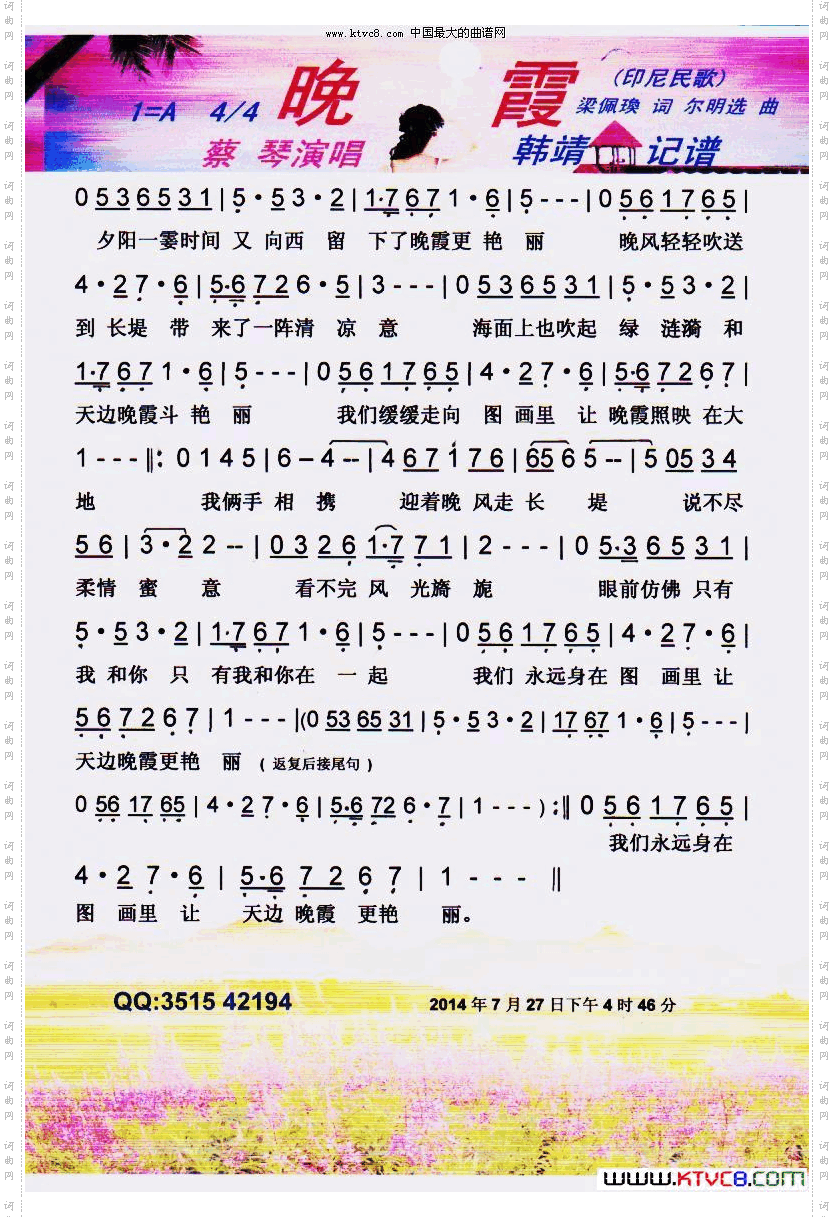 www.ktvc8.com 中国最大的曲谱网
晚 霞
(印尼民歌)
1=A 4/4
梁佩瑍 词 尔明选 曲
蔡 琴演唱
韩靖 记谱
0 5 3 6 5 3 1 | 5 · 5 3 · 2 | 1 · 7 6 7 1 · 6 | 5 - - - | 0 5 6 1 7 6 5 |
夕阳一霎时间 又 向西 留 下了晚霞更 艳 丽 晚风轻轻吹送
4 · 2 7 · 6 | 5 · 6 7 2 6 · 5 | 3 - - - | 0 5 3 6 5 3 1 | 5 · 5 3 · 2 |
到 长堤 带 来了一阵清 凉 意 海面上也吹起 绿 涟漪 和
1 · 7 6 7 1 · 6 | 5 - - - | 0 5 6 1 7 6 5 | 4 · 2 7 · 6 | 5 · 6 7 2 6 7 |
天边晚霞斗 艳 丽 我们缓缓走向 图 画里 让 晚霞照映 在大
1 - - - ‖: 0 1 4 5 | 6 - 4 - - | 4 6 7 1 7 6 | 6 5 6 5 - - | 5 0 5 3 4
地 我俩手 相 携 迎着晚 风走 长 堤 说不尽
5 6 | 3 · 2 2 - - | 0 3 2 6 1 · 7 7 1 | 2 - - - | 0 5 · 3 6 5 3 1 |
柔情 蜜 意 看不完 风 光旖 旎 眼前仿佛 只有
5 · 5 3 · 2 | 1 · 7 6 7 1 · 6 | 5 - - - | 0 5 6 1 7 6 5 | 4 · 2 7 · 6 |
我 和你 只 有我和你在 一 起 我们 永远身在 图 画里 让
5 6 7 2 6 7 | 1 - - - | (0 5 3 6 5 3 1 | 5 · 5 3 · 2 | 1 7 6 7 1 · 6 | 5 - - - |
天边晚霞更艳 丽 ( 返复后接尾句 )
0 5 6 1 7 6 5 | 4 · 2 7 · 6 | 5 · 6 7 2 6 · 7 | 1 - - - ) :‖ 0 5 6 1 7 6 5 |
我们永远身在
4 · 2 7 · 6 | 5 · 6 7 2 6 7 | 1 - - - ‖
图 画里 让 天边 晚霞 更艳 丽。
QQ:3515 42194
2014 年 7 月 27 日下午 4 时 46 分
www.KTVC8.com